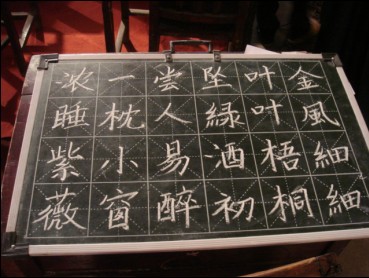 金風細細
叶叶梧桐
坠緑酒初
尝人易醉
一枕小窗
浓睡紫薇